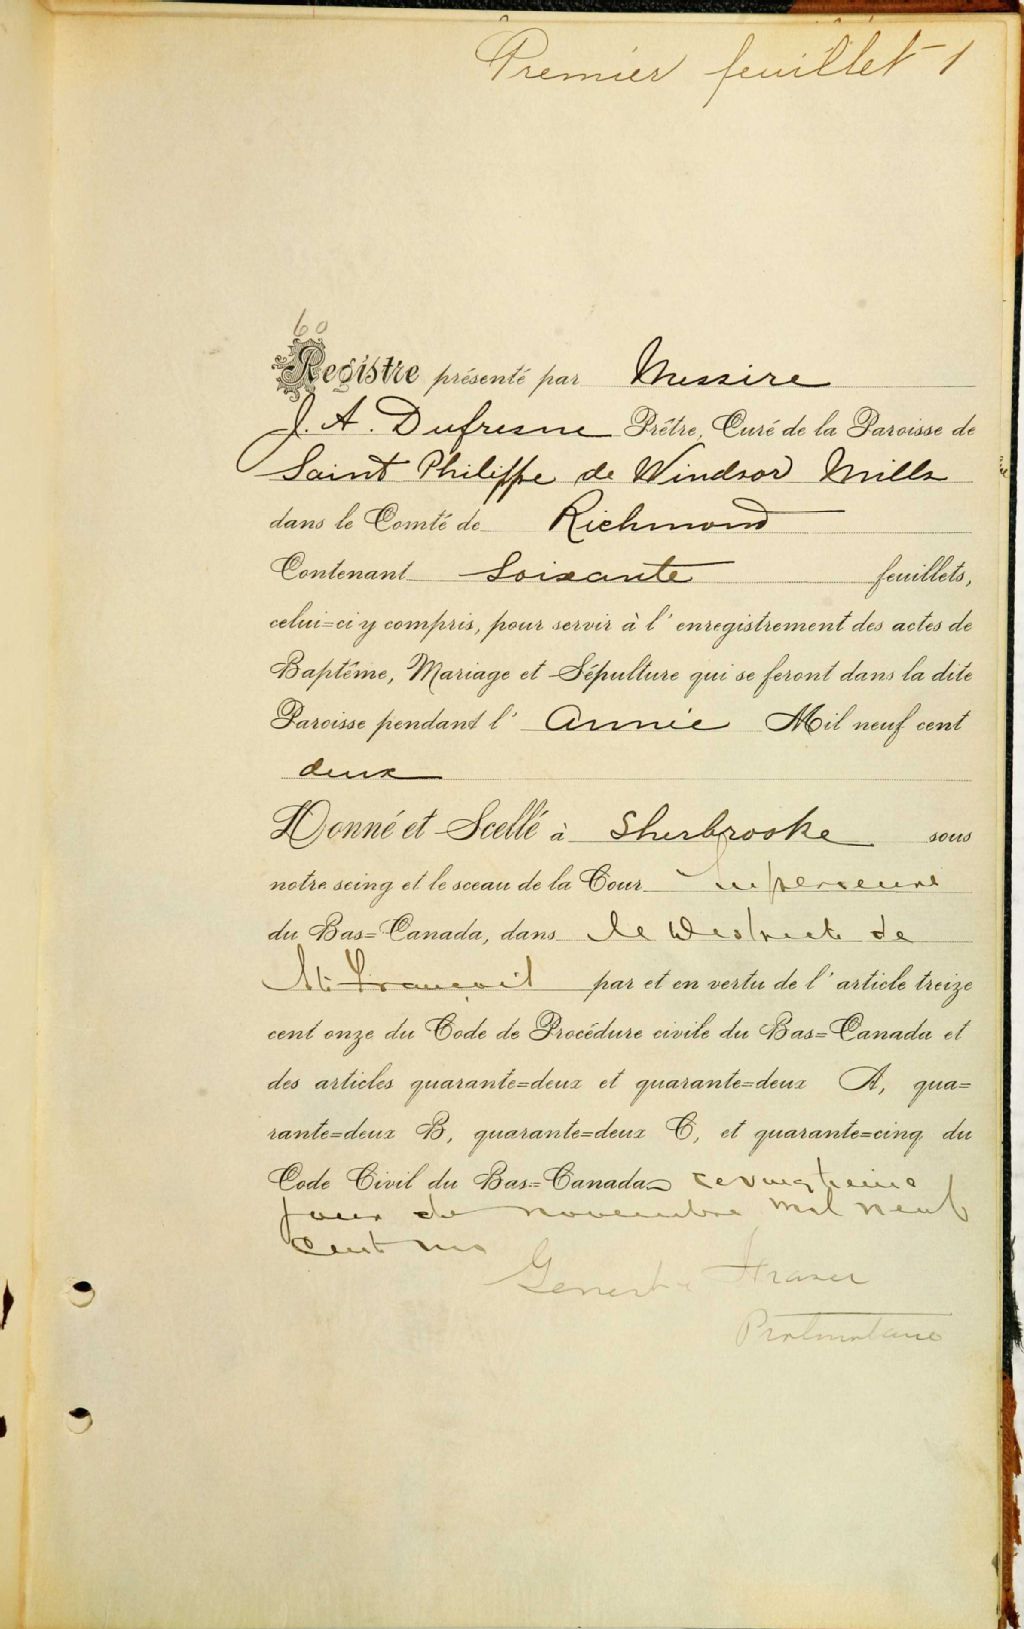 Premier feuillet 1
60
Registre présenté par Messire
J. A. Dufresne Prêtre, Curé de la Paroisse de
Saint Philippe de Windsor Mills
dans le Comté de Richmond
Contenant Soixante feuillets,
celui=ci y compris, pour servir à l'enregistrement des actes de
Baptême, Mariage et Sépulture qui se feront dans la dite
Paroisse pendant l'Année Mil neuf cent
deux
Donné et Scellé à Sherbrooke sous
notre seing et le sceau de la Cour Superieure
du Bas=Canada, dans le District de
St François par et en vertu de l'article treize
cent onze du Code de Procédure civile du Bas=Canada et
des articles quarante=deux et quarante=deux A, qua=
rante=deux B, quarante=deux C, et quarante=cinq du
Code Civil du Bas=Canada ce
jour de novembre mil neuf
cent un
Fraser
Protonotaire